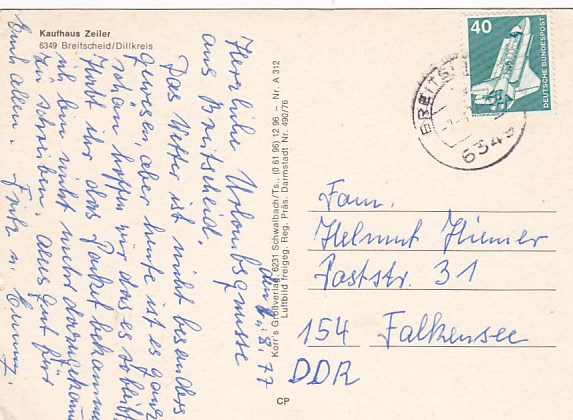 Kaufhaus Zeiler
6349 Breitscheid/Dillkreis
Herzliche Urlaubsgrüsse
aus Breitscheid.
Das Wetter ist nicht besonders
gewesen, aber heute ist es ganz
schön hoffen wir das es so bleibt
Habt ihr das Paket bekommen
ich bin nicht mehr dazugekommen
zu schreiben. Alles gut für
Euch allen. Fritz u Emmy.
8.77
Korr's Großverlag, 6231 Schwalbach/Ts., (0 61 96) 12 96 – Nr. A 312
Luftbild freigeg. Reg. Präs. Darmstadt Nr. 490/76
CP
40
DEUTSCHE BUNDESPOST
6349
Fam.
Helmut Hiemer
Poststr. 31
154 Falkensee
DDR